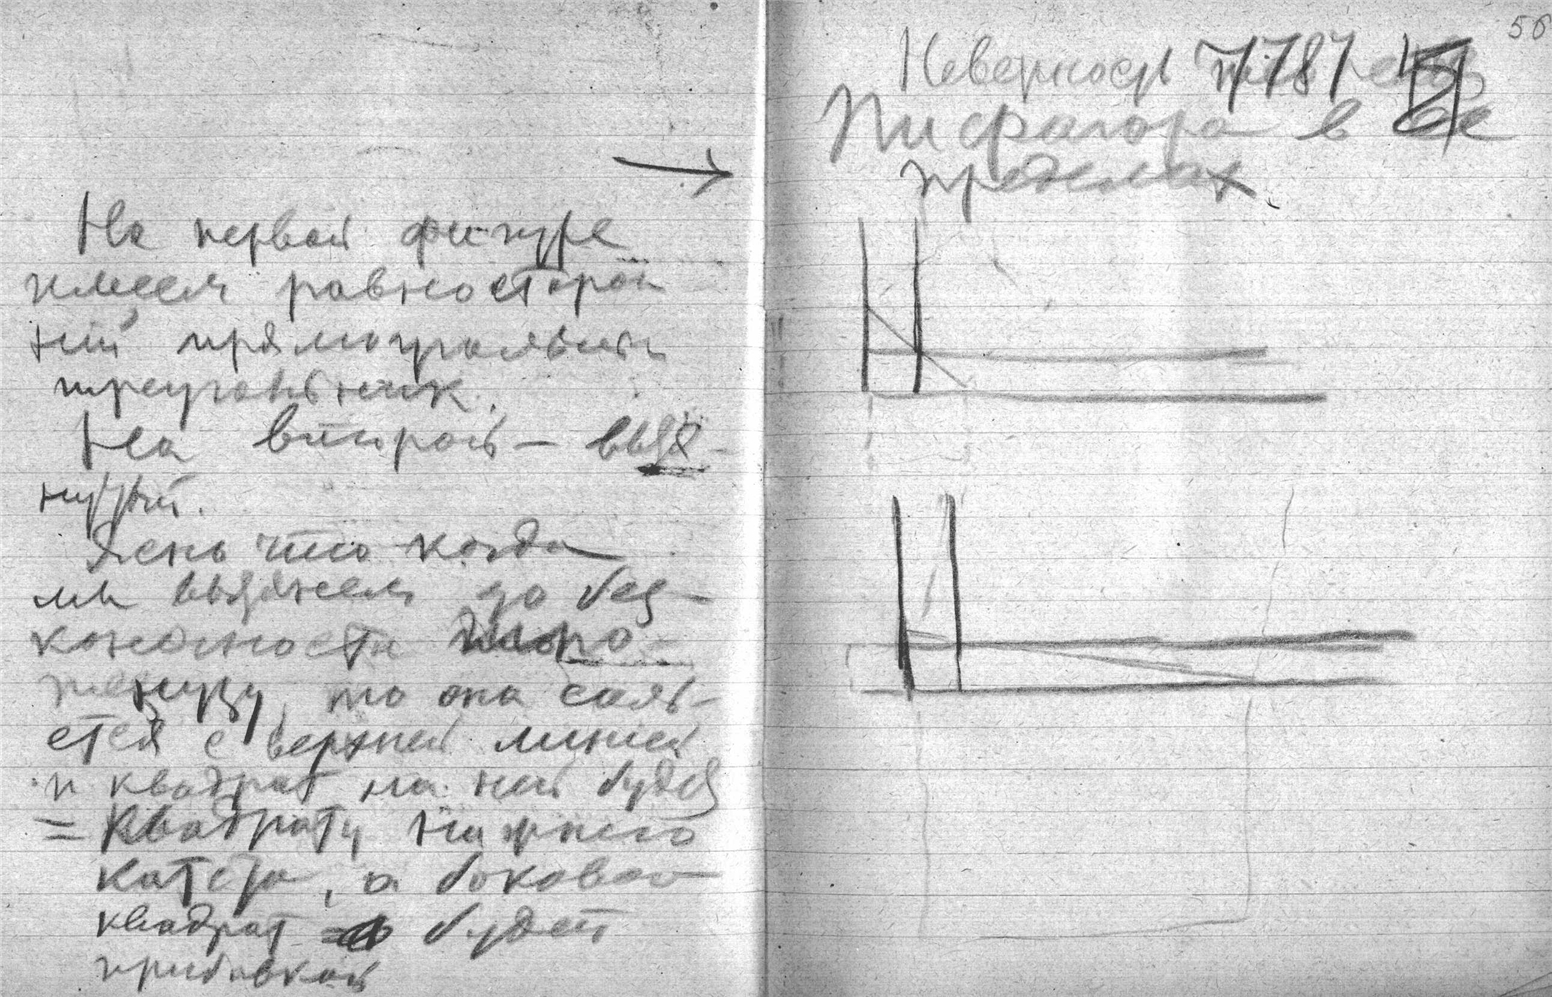 На первой фигуре
имеем равносторон
ний прямоугольный
треугольник.
На второй – вытя-
нутый.
Ясно что когда
мы вытянем до без-
конечности гипо-
тенузу, то она соль-
ется с верхней линией
и квадрат на ней будет
= квадрату нижнего
катета, а боковой
квадрат будет
прибавкой
56
Неверность 7/787
Пифагора в ее
пределах